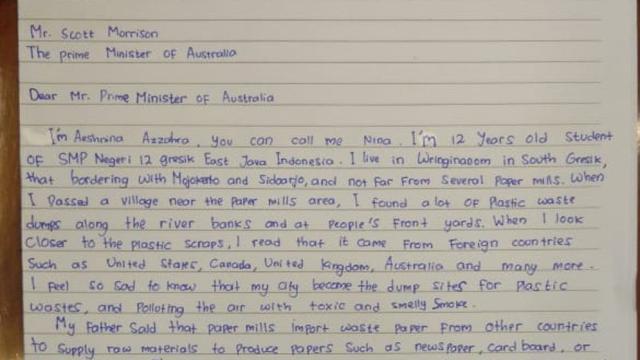 Mr. Scott Morrison
The prime Minister of Australia
Dear Mr. Prime Minister of Australia
I'm Aeshnina Azzahra. You can call me Nina. I'm 12 Years old student
of SMP Negeri 12 gresik East Java Indonesia. I live in Wringinanom in South Gresik,
that bordering with Mojokerto and Sidoarjo, and not far from several paper mills. When
I passed a village near the paper mills area, I found a lot of Plastic waste
dumps along the river banks and at people's front yards. When I look
closer to the plastic scraps, I read that it came from foreign countries
Such as United States, Canada, United kingdom, Australia and many more.
I feel so sad to know that my city become the dump sites for plastic
wastes, and polloting the air with toxic and smelly smoke.
My father said that paper mills import waste paper from other countries
to supply raw materials to produce papers such as newspaper, cardboard, or